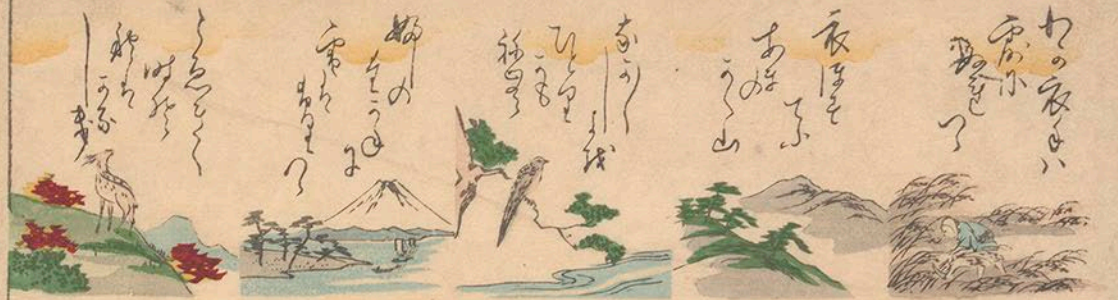 わか衣手ハ
露尓
ぬれつゝ
衣ほす
てふ
あまの
かく山
なか〳〵し
よを
ひとり
かも
ねむ
婦しの
たかねに
雪は
ふりつゝ
こゑきく
時そ
秋は
かな
しき